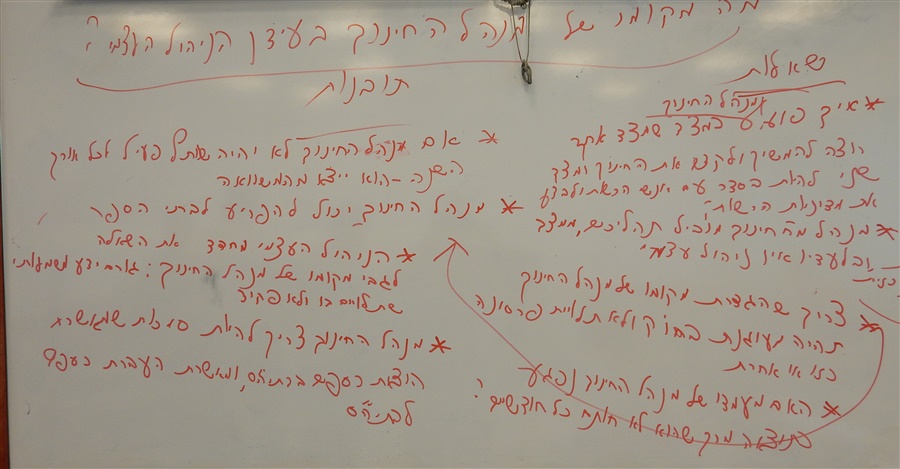 מה מקומו של מנהל החינוך בעידן הניהול העצמי?
שאלות
* איך פועל מנהל החינוך כמצד שמצד אחד
רוצה להמשיך ולקדם את החינוך ומצד
שני להיות בסדר עם אנשי הרשת ולבצע
את מדיניות הרשות"
* מנהל מח' חינוך מוביל תהליכים, ממצב
ובלעדיו אין ניהול עצמי"
* צריך שהגדרת מקומו של מנהל החינוך
תהיה מעוגנת בחוק ולא תלויית פרסונה
כזו או אחרת
* האם מעמדו של מנהל החינוך נפגע
כתוצאה מכך שהוא לא חותם כל חודשיים?
תובנות
* אם מנהל החינוך לא יהיה שותף פעיל לכל אורך
השנה - הוא ייצא מהמשוואה
* מנהל החינוך יכול להפריע לבתי הספר
* הניהול העצמי מחדד את השאלה
לגבי מקומו של מנהל החינוך; גורם ידע משמעותי
שתלויים בו ולא פחיד
* מנהל החינוך צריך להיות סמכות שמאשרת
הוצאת כספים ברתיהס, ומאשרת העברת כספים
לבתיה"ס